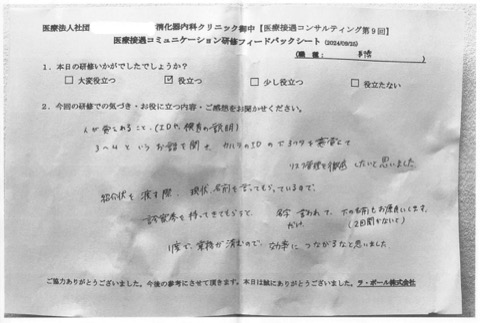 医療法人社団 消化器内科クリニック御中【医療接遇コンサルティング第9回】
医療接遇コミュニケーション研修フィードバックシート (2024/09/25)
(職種: )
1. 本日の研修いかがでしたでしょうか?
□ 大変役立つ ☑ 役立つ □ 少し役立つ □ 役立たない
2. 今回の研修での気づき・お役に立つ内容・ご感想をお聞かせください。
人が
というお話を聞き、カルテのIDの
リスク管理を徹底したいと思いました
紹介状を渡す際、現状、名前を言ってもらっているまで、
診察券を持ってきてもらうと、名字言われて、下の名前もお願いします。
だけ
1度で、業務が済むので、効率につながるなと思いました。
ご協力ありがとうございました。今後の参考にさせて頂きます。本日は誠にありがとうございました。ラ・ポール株式会社